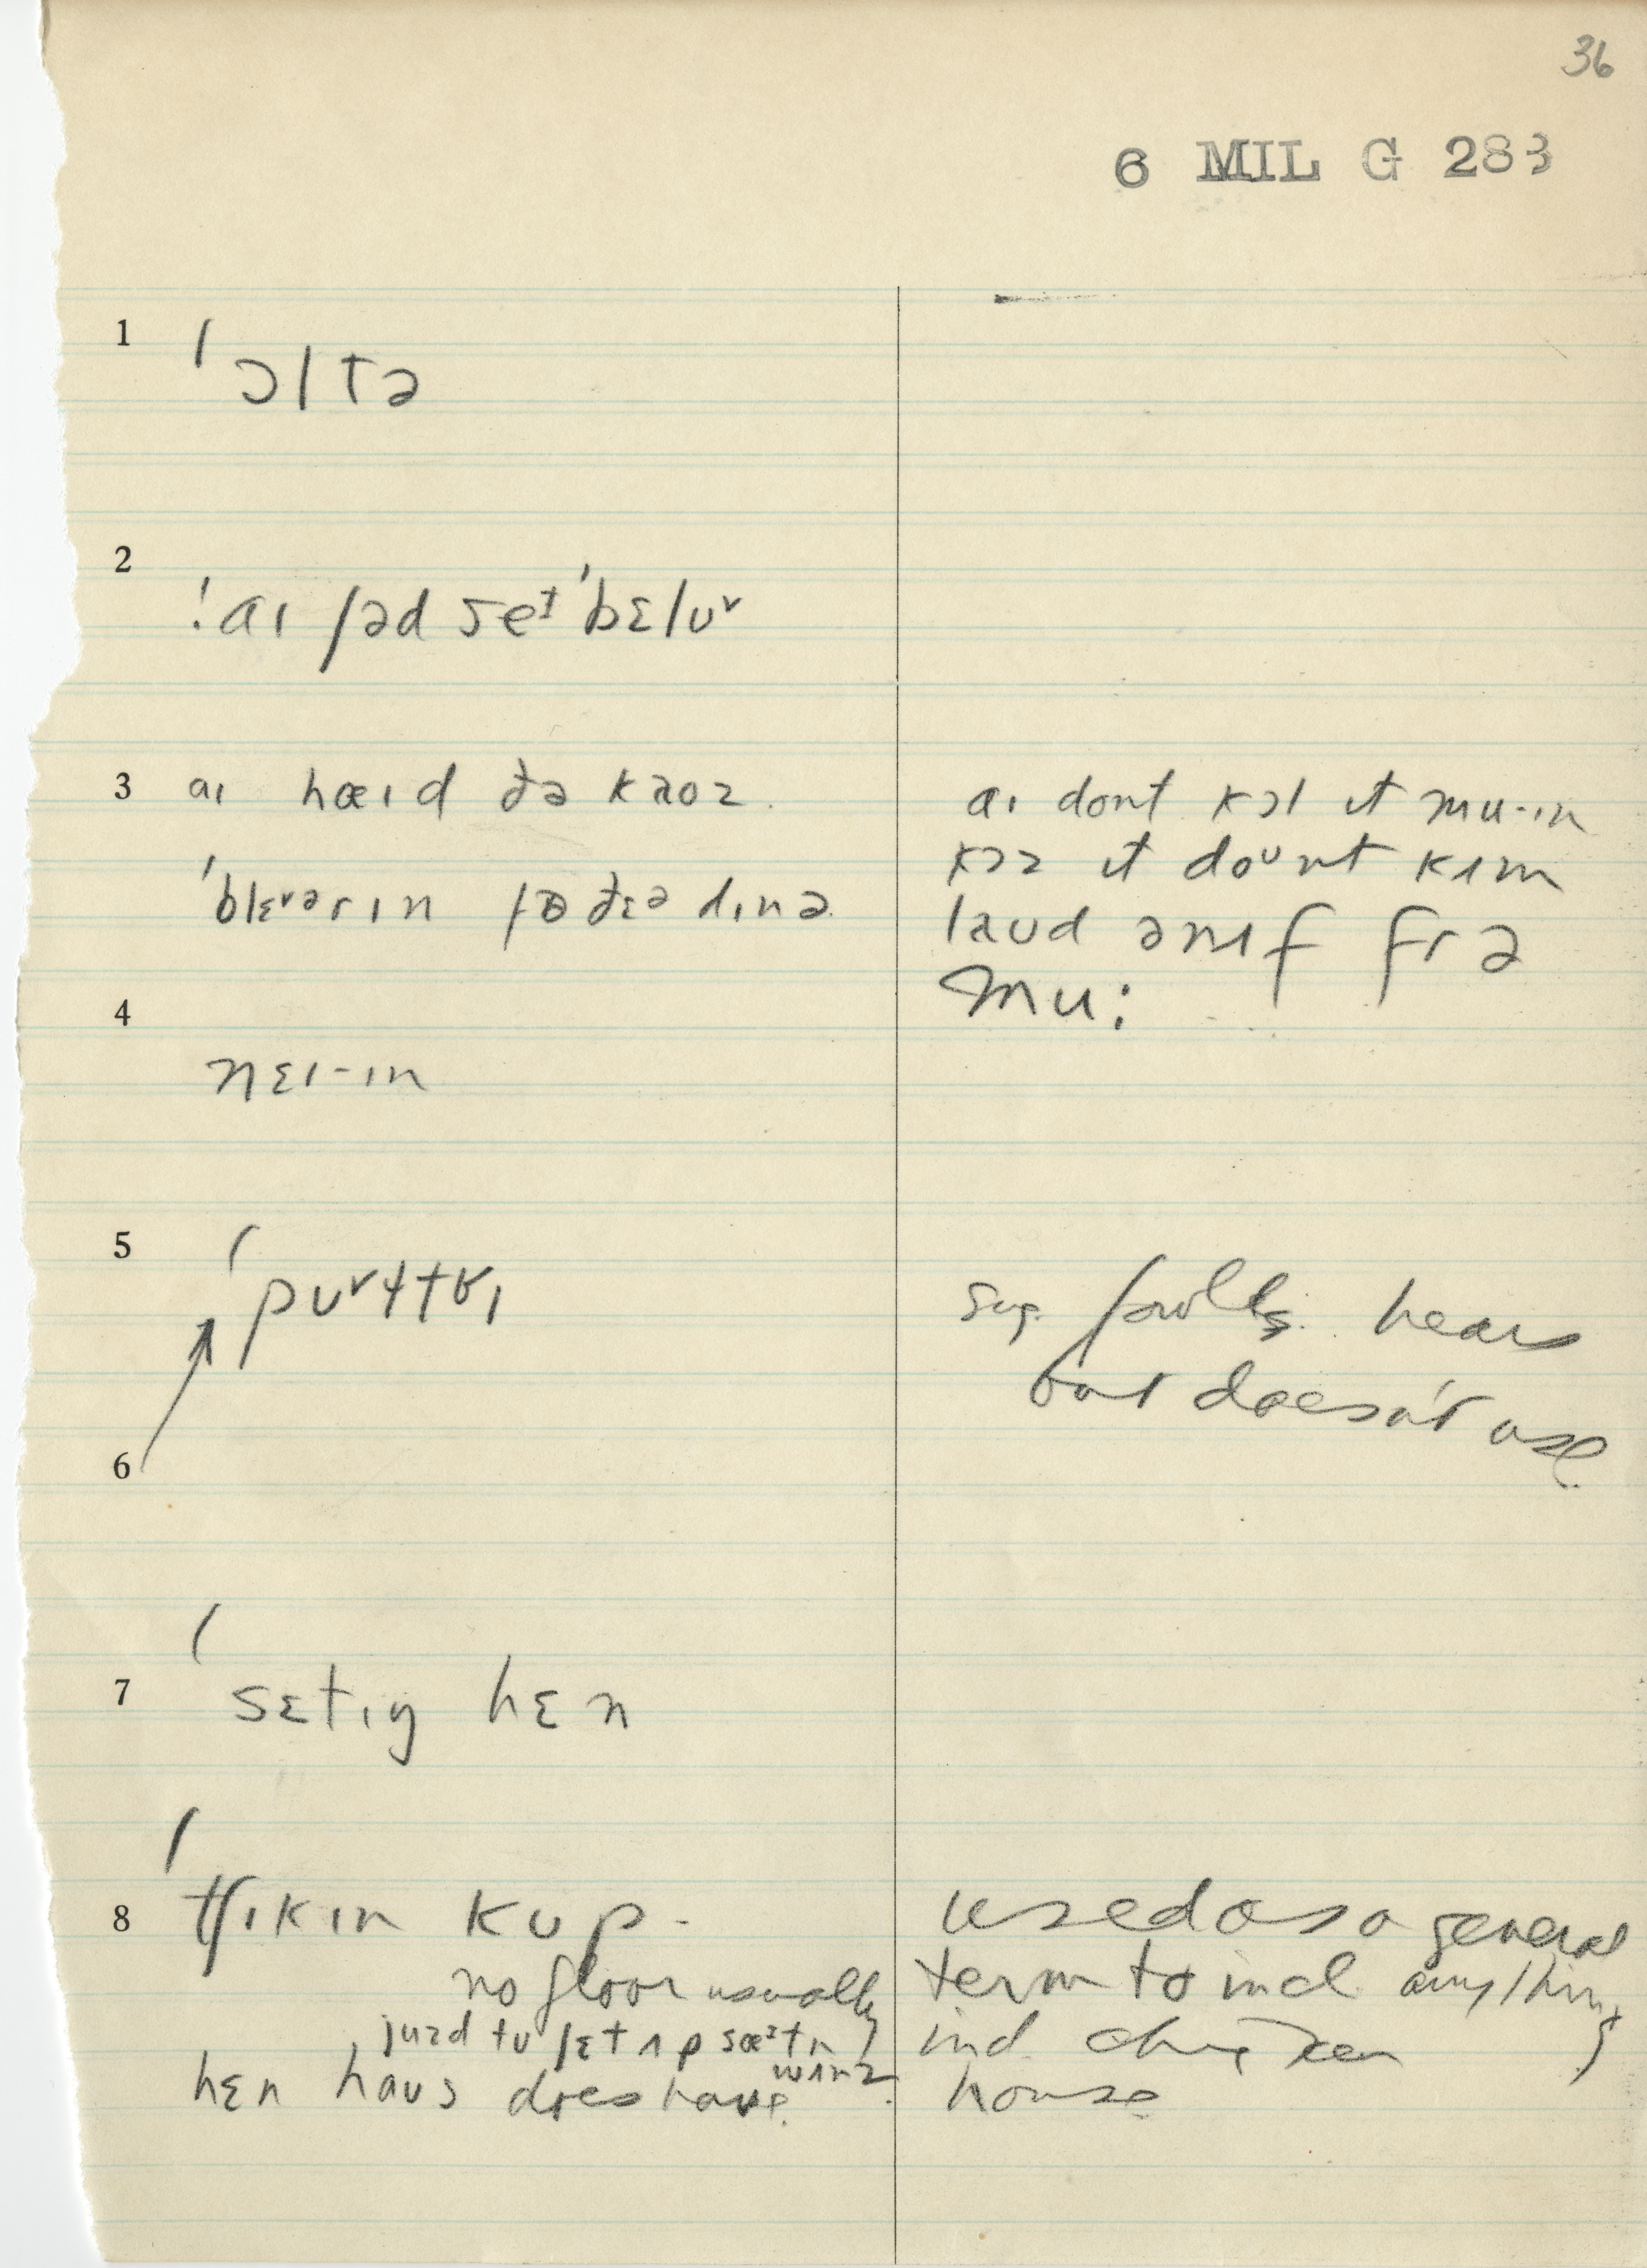 36
6 MIL G 283
1 ˈɔltə
2 ˈaɪ ʃəd seᵻ ˈbɛlʊ˅
3 aɪ hæɪd ðə kaoz.
ˈblɛ˅ərɪn fɚ ðɛə dɪnə
aɪ dont kɔl ɪt mu-ɪn
kɔz ɪt doᵘnt kʌm
laud ənʌf frə
mu:
4 nɛɪ-ɪn
5 ˈpʊ˅ɬtrɪ
sug. hears
but doesn't use.
6
7 ˈsɛtɪŋ hɛn
8 ˈtʃɪkɪn kup -
no floor usually
juzd tu ʃɛt ʌp sæᶻtn
wʌnz
hɛn haus does have.
used as a general
term to incl anything
incl. chicken
house